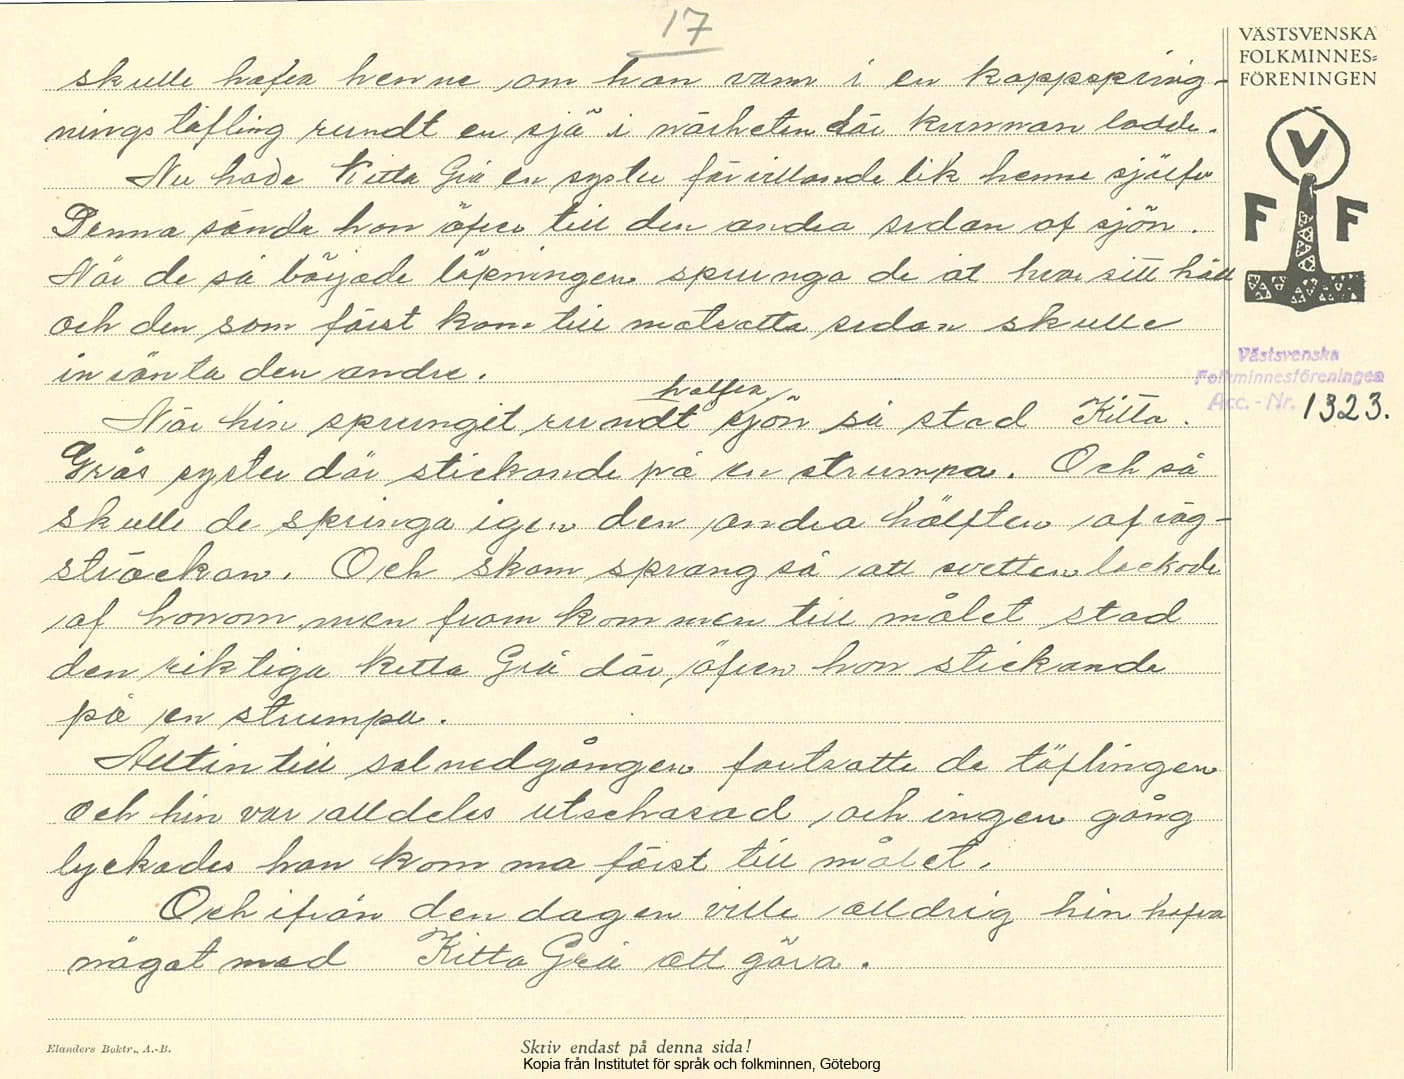 17
VÄSTSVENSKA
FOLKMINNES=
FÖRENINGEN
V
F F
Västsvenska
Folkminnesföreningen
Acc. - Nr. 1323.
skulle hafva henne om han vann i en kappspring-
nings täfling rundt en sjö i närheten där kvinnan bodde.
Nu hade Kitta Grå en syster förvillande lik henne sjelfv
Denna sände hon öfver till den andra sidan af sjön.
När de så började löpningen sprungo de åt hvar sitt håll
och den som först kom till motsatta sidan skulle
invänta den andre.
När hin sprungit rundt halfva sjön så stod Kitta
Grås syster där stickande på en strumpa. Och så
skulle de springa igen den andra hälften af väg-
sträckan. Och skam sprang så att svetten lackade
af honom, men framkommen till målet stod
den riktiga Kitta Grå där, äfven hon stickande
på en strumpa.
Alltintill solnedgången fortsatte de täflingen
och hin var alldeles utschasad och ingen gång
lyckades han komma först till målet.
Och ifrån den dagen ville alldrig hin hafva
något med Kitta Grå att göra.
Elanders Boktr., A.-B.
Skriv endast på denna sida!
Kopia från Institutet för språk och folkminnen, Göteborg